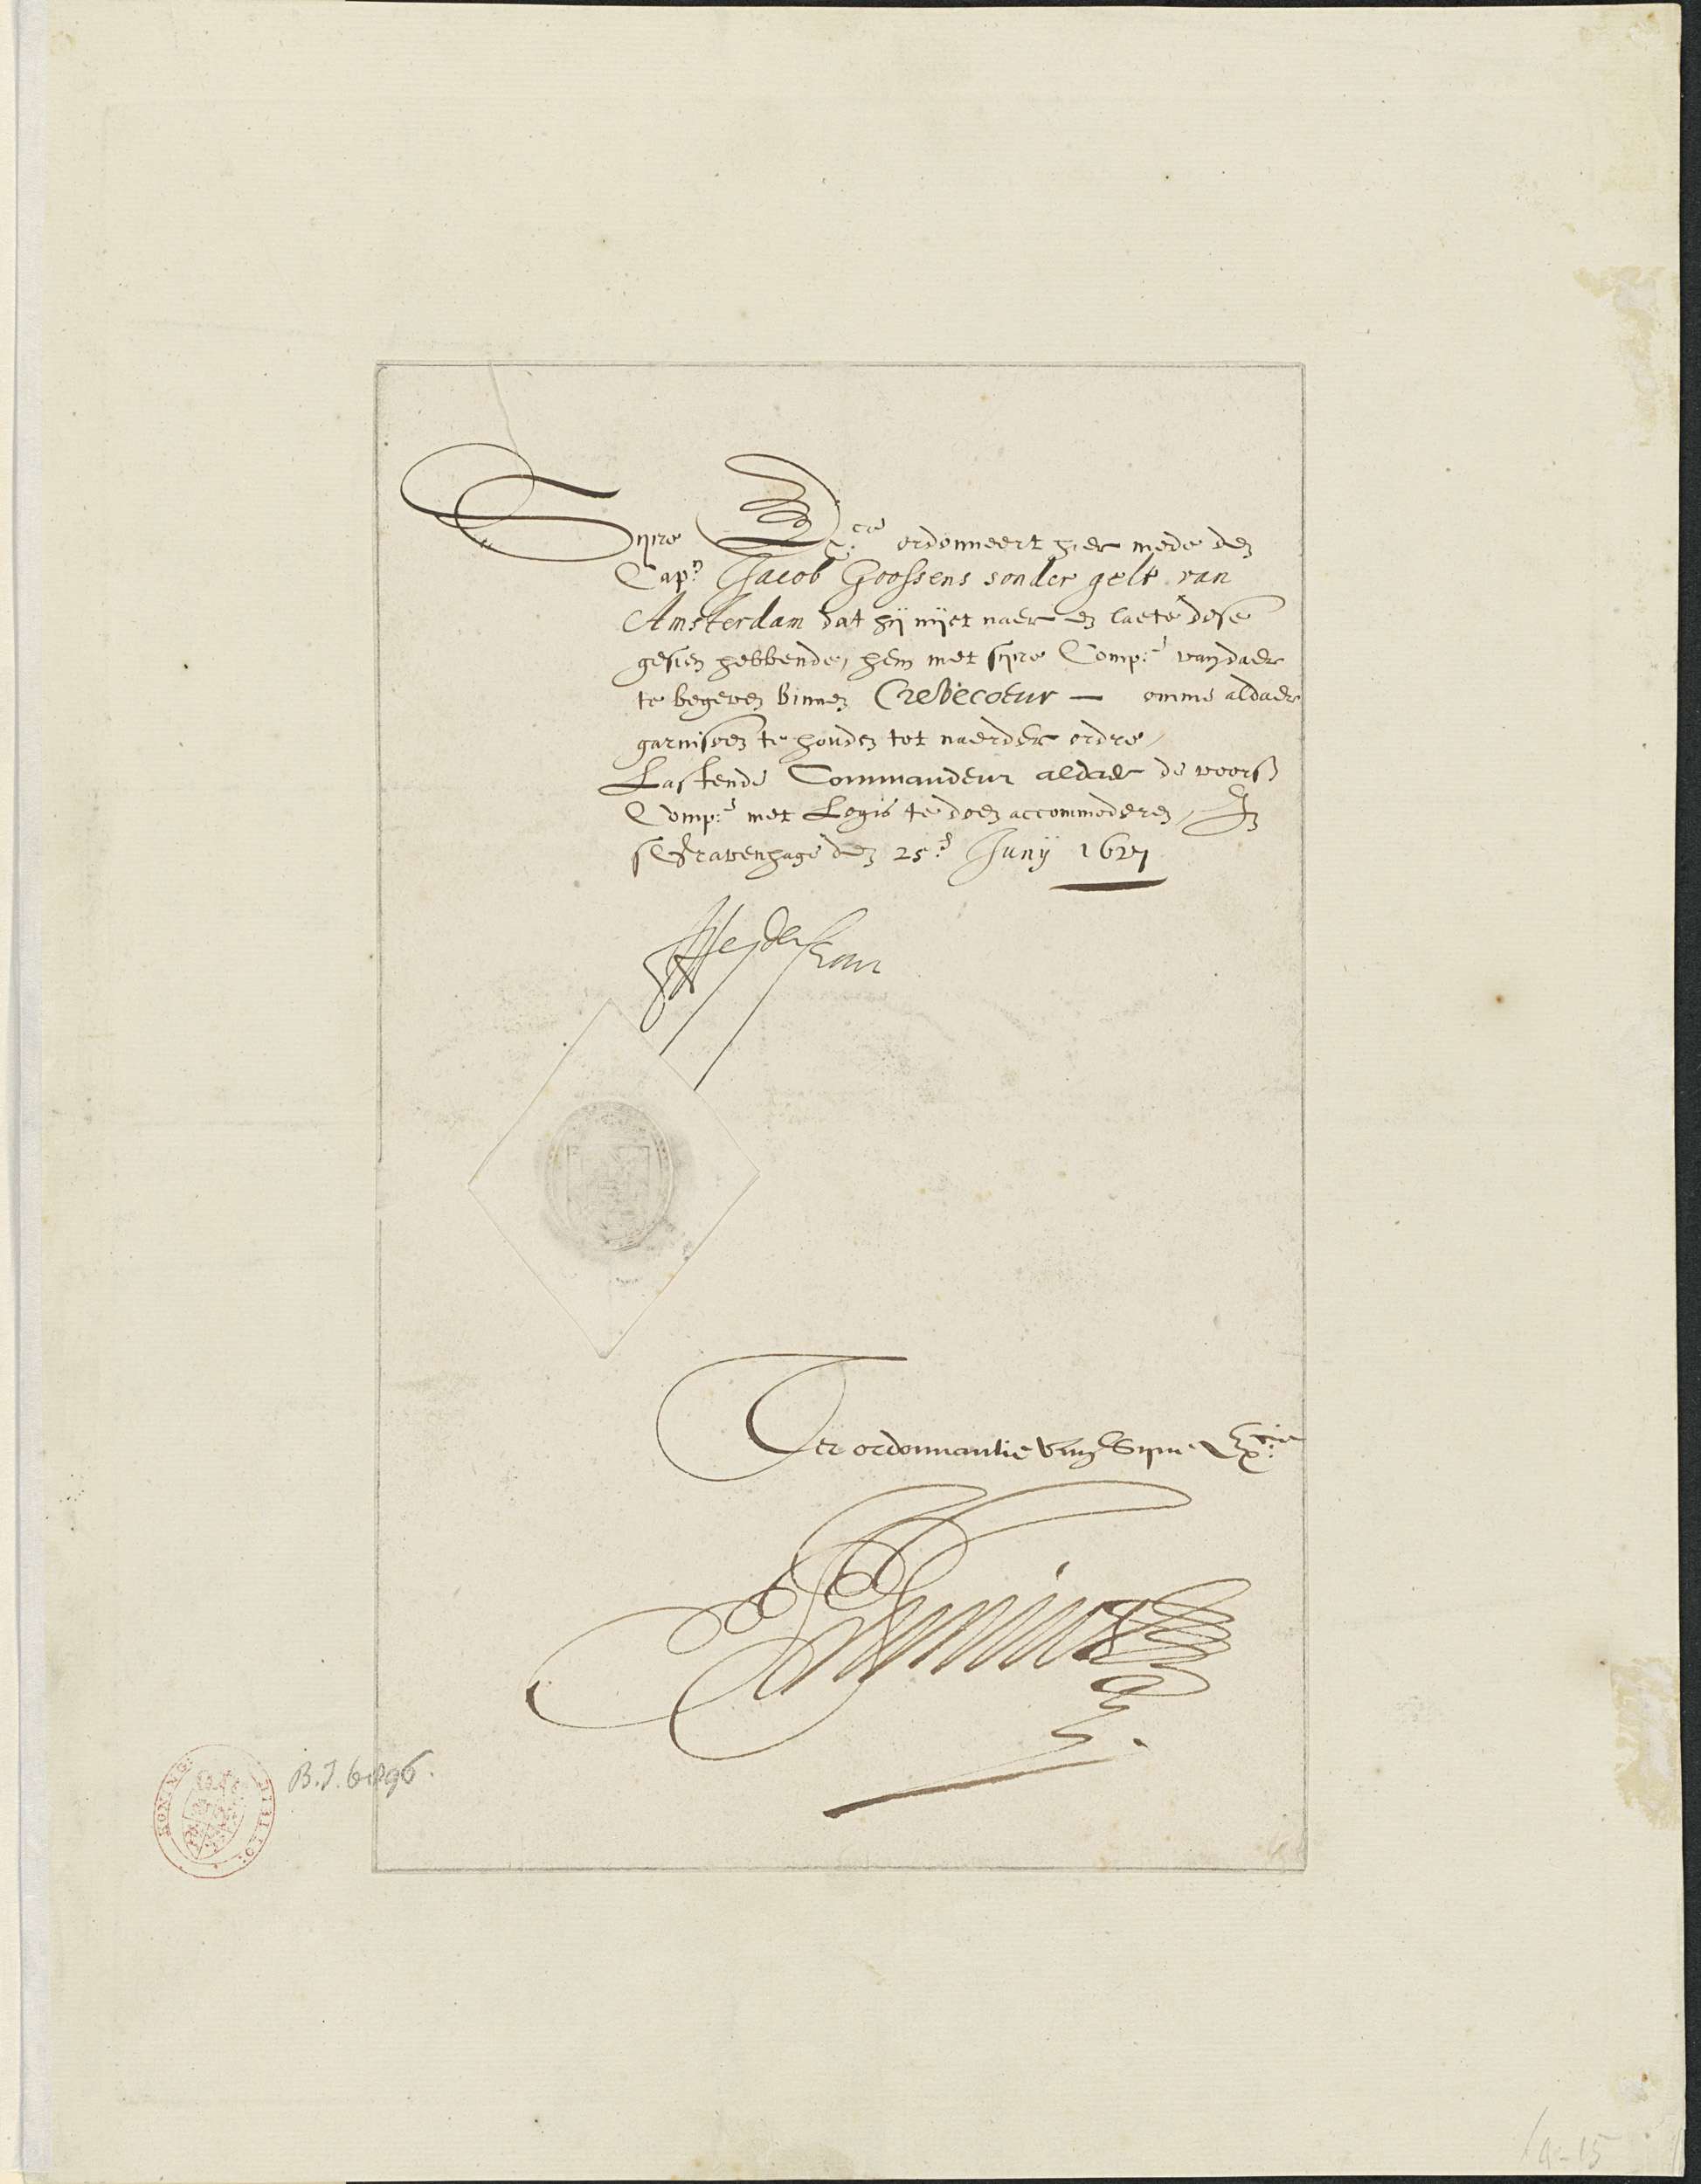 Sijne Exc:cie ordonneert hier mede den
Capn: Jacob Goossens sonder gelt van
Amsterdam dat hij nijet naer en laete dese
gesien hebbende, hem met sijne Comp:e van daer
te begeven binnen Crevecoeur — omme aldaer
garnisoen te houden tot naerder ordre,
Lastende Commandeur aldaer de voors
Comp:e met Logis te doen accommoderen, In
sGravenhage den 25:e Junij 1627
Ter ordonnantie van Sijne Ex:cie
Junius
KONING: BIBLIO: